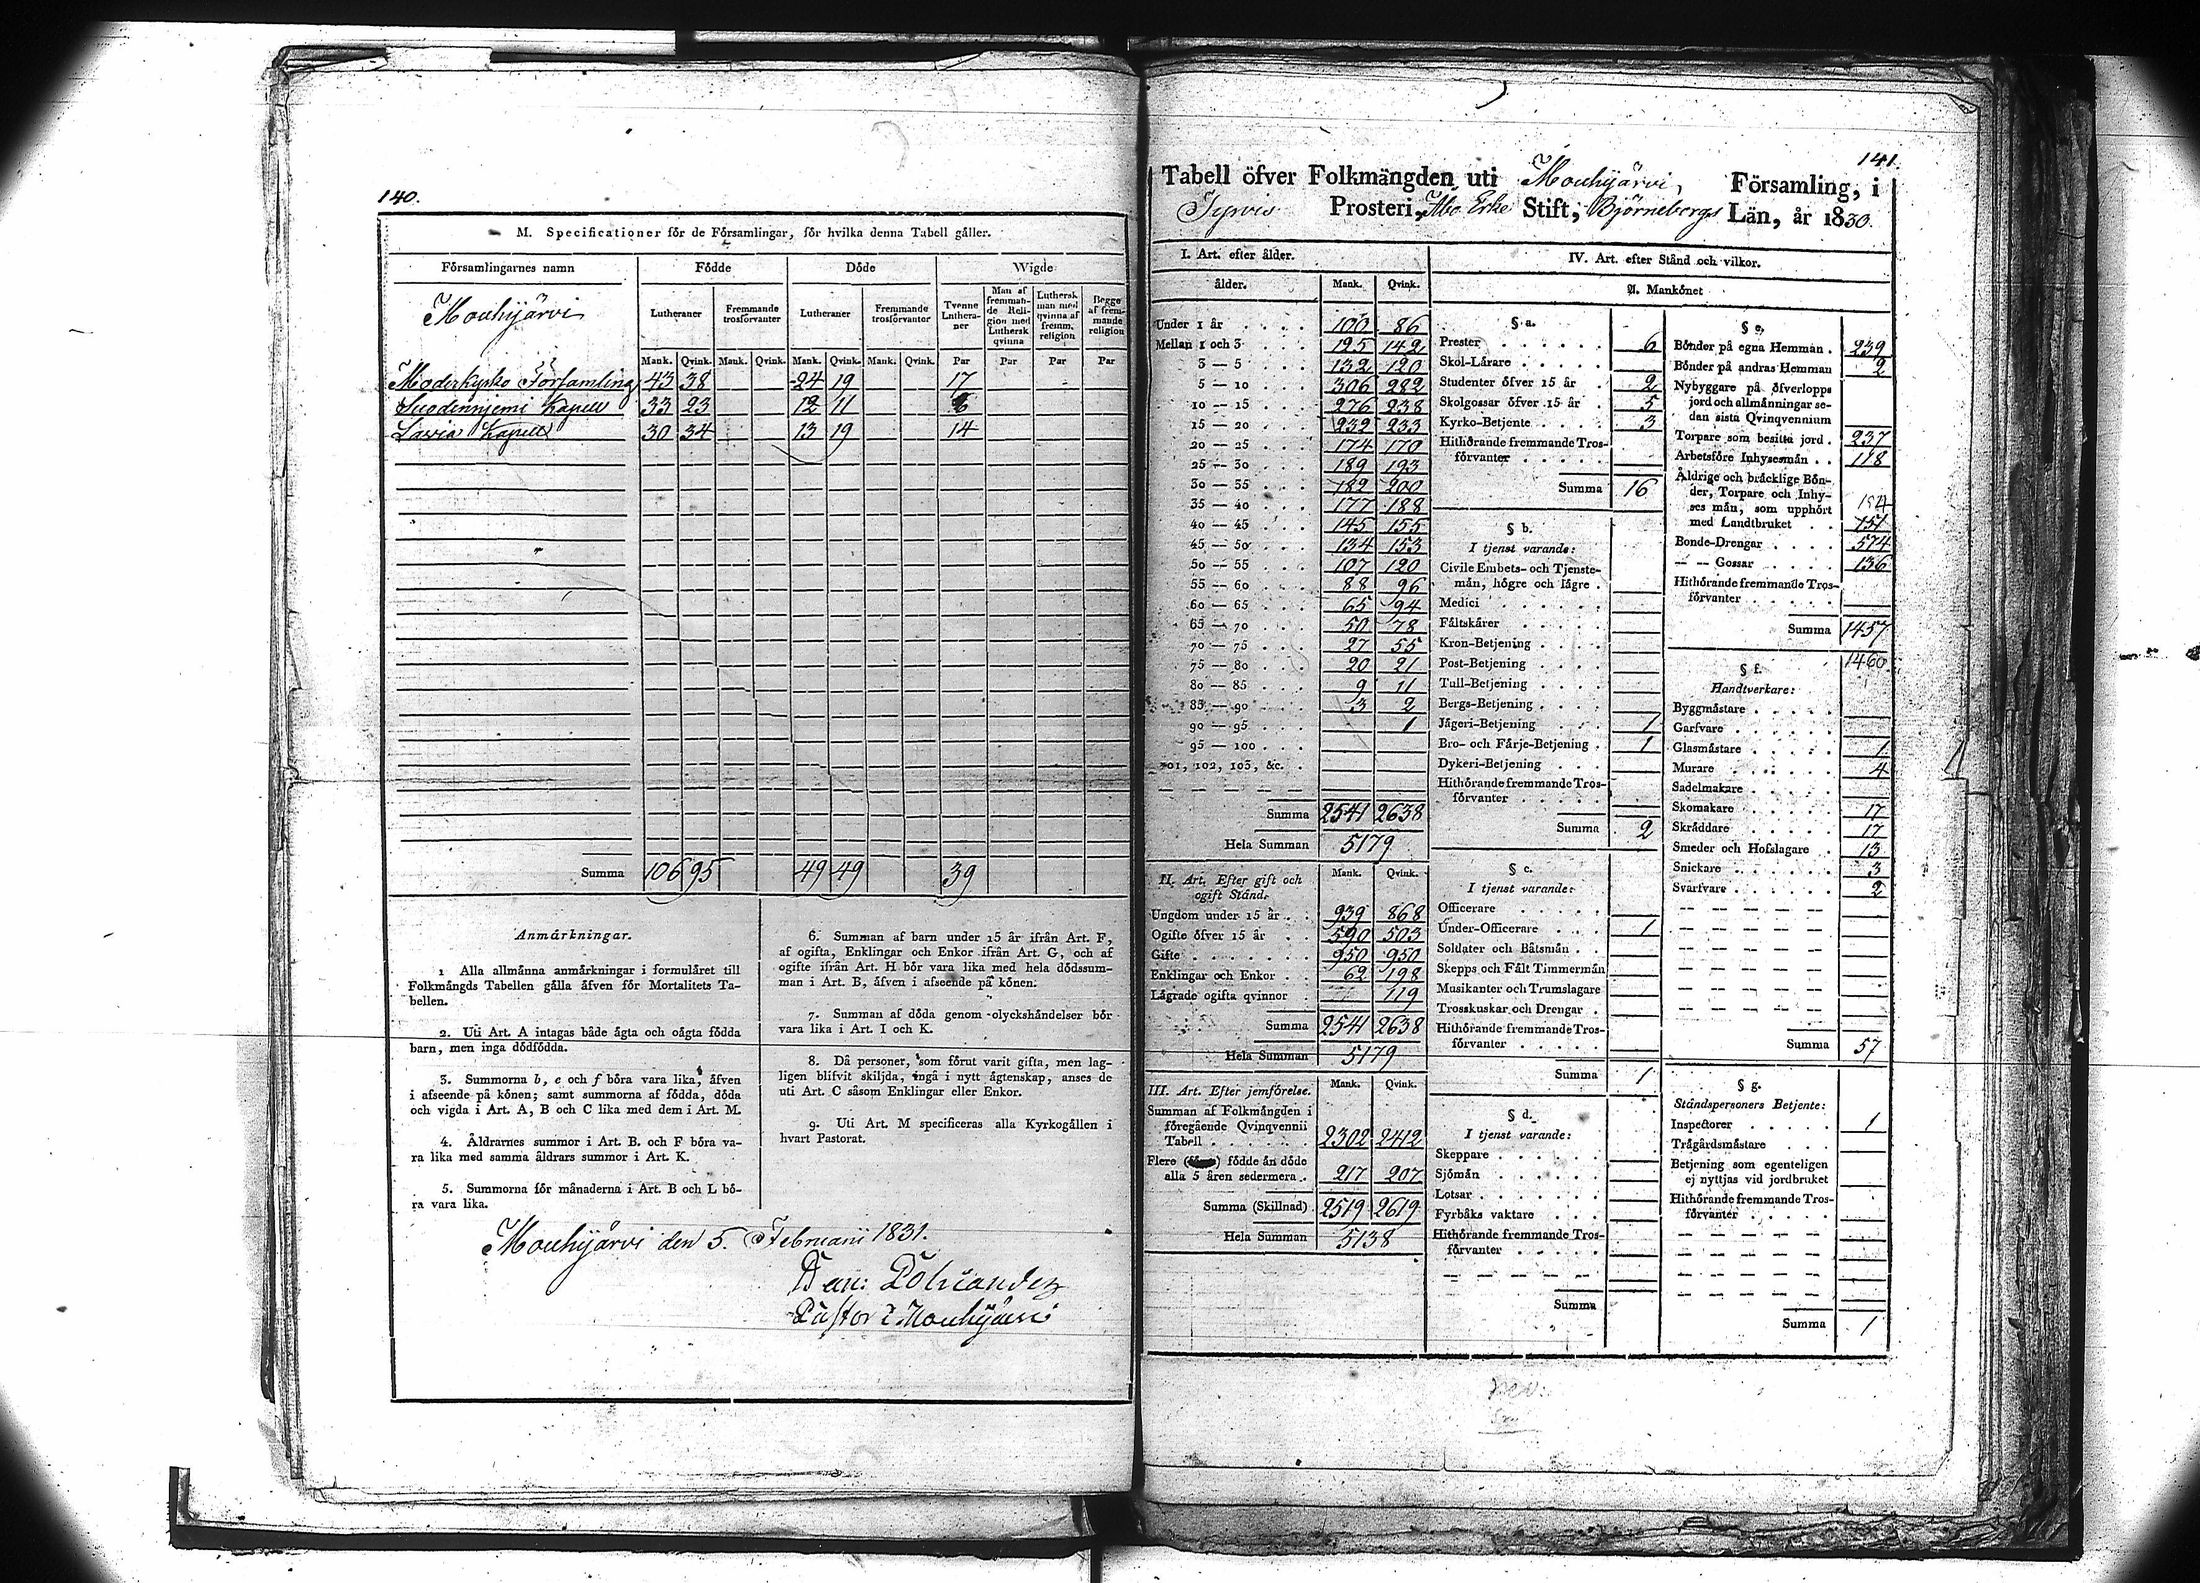 140.
M. Specificationer för de Församlingar, för hvilka denna Tabell gäller.
Församlingarnes namn Födde Döde Wigde
Mouhijärvi
Lutheraner Fremmande trosförvanter Lutheraner Fremmande trosförvanter Tvenne Luthera-ner Man af fremman-de Reli-gion med Luthersk qvinna Luthersk man med qvinna af fremm. religion Begge af frem-mande religion
Mank. Qvink. Mank. Qvink. Mank. Qvink. Mank. Qvink. Par Par Par Par
Moderkyrko Församling 43 38 24 19 17
Suodennjemi Kapell 33 23 12 11
Lavia Kapell 30 34 13 19 14
Summa 106 95 49 49 39
Anmärkningar.
1 Alla allmänna anmärkningar i formuläret till
Folkmängds Tabellen gälla äfven för Mortalitets Ta-
bellen.
2. Uti Art. A intagas både ägta och oägta födda
barn, men inga dödfödda.
3. Summorna b, e och f böra vara lika, äfven
i afseende på könen; samt summorna af födda, döda
och vigda i Art. A, B och C lika med dem i Art. M.
4. Åldrarnes summor i Art. B. och F böra va-
ra lika med samma åldrars summor i Art. K.
5. Summorna för månaderna i Art. B och L bö-
ra vara lika.
6. Summan af barn under 15 år ifrån Art. F,
af ogifta, Enklingar och Enkor ifrån Art. G, och af
ogifte ifrån Art. H bör vara lika med hela dödssum-
man i Art. B, äfven i afseende på könen.
7. Summan af döda genom olyckshändelser bör
vara lika i Art. I och K.
8. Då personer, som förut varit gifta, men lag-
ligen blifvit skiljda, ingå i nytt ägtenskap, anses de
uti Art. C såsom Enklingar eller Enkor.
9. Uti Art. M specificeras alla Kyrkogällen i
hvart Pastorat.
Mouhijärvi den 5. Februarii 1831.
Dan: Polviander
Pastor i Mouhijärvi
141.
Tabell öfver Folkmängden uti Mouhijärvi, Församling, i
Tyrvis Prosteri, Åbo Erke Stift, Björneborgs Län, år 1830.
I. Art. efter ålder.
ålder. Mank. Qvink.
Under 1 år 100 86
Mellan 1 och 3 195 142
3 — 5 132 120
5 — 10 306 282
10 — 15 276 238
15 — 20 232 233
20 — 25 174 170
25 — 30 189 193
30 — 35 182 200
35 — 40 177 188
40 — 45 145 155
45 — 50 134 153
50 — 55 107 120
55 — 60 88 96
60 — 65 65 94
65 — 70 50 78
70 — 75 27 55
75 — 80 20 21
80 — 85 9 11
85 — 90 3 2
90 — 95 1
95 — 100
101, 102, 103, &c.
Summa 2541 2638
Hela Summan 5179
II. Art. Efter gift och ogift Stånd. Mank. Qvink.
Ungdom under 15 år 939 868
Ogifte öfver 15 år 590 503
Gifte 950 950
Enklingar och Enkor 62 198
Lägrade ogifta qvinnor 119
Summa 2541 2638
Hela Summan 5179
III. Art. Efter jemförelse. Mank. Qvink.
Summan af Folkmängden i
föregående Qvinqvennii
Tabell 2302 2412
Flere födde än döde
alla 5 åren sedermera 217 207
Summa (Skillnad) 2519 2619
Hela Summan 5138
IV. Art. efter Stånd och vilkor.
A. Mankönet
§ a.
Prester 6
Skol-Lärare
Studenter öfver 15 år 2
Skolgossar öfver 15 år 5
Kyrko-Betjente 3
Hithörande fremmande Tros-
förvanter
Summa 16
§ b.
I tjenst varande:
Civile Embets- och Tjenste-
män, högre och lägre
Medici
Fältskärer
Kron-Betjening
Post-Betjening
Tull-Betjening
Bergs-Betjening
Jägeri-Betjening 1
Bro- och Färje-Betjening 1
Dykeri-Betjening
Hithörande fremmande Tros-
förvanter
Summa 2
§ c.
I tjenst varande:
Officerare
Under-Officerare 1
Soldater och Båtsmän
Skepps och Fält Timmermän
Musikanter och Trumslagare
Trosskuskar och Drengar
Hithörande fremmande Tros-
förvanter
Summa 1
§ d.
I tjenst varande:
Skeppare
Sjömän
Lotsar
Fyrbåks vaktare
Hithörande fremmande Tros-
förvanter
Summa
§ e.
Bönder på egna Hemman 239
Bönder på andras Hemman 2
Nybyggare på öfverlopps
jord och allmänningar se-
dan sista Qvinqvennium
Torpare som besitta jord 237
Arbetsföre Inhysesmän 118
Åldrige och bräcklige Bön-
der, Torpare och Inhy-
ses män, som upphört 154
med Landtbruket 151
Bonde-Drengar 574
— — Gossar 136
Hithörande fremmande Tros-
förvanter
Summa 1457
1460
§ f.
Handtverkare:
Byggmästare
Garfvare
Glasmästare 1
Murare 4
Sadelmakare
Skomakare 17
Skräddare 17
Smeder och Hofslagare 13
Snickare 3
Svarfvare 2
Summa 57
§ g.
Ståndspersoners Betjente:
Inspector 1
Trägårdsmästare
Betjening som egenteligen
ej nyttjas vid jordbruket
Hithörande fremmande Tros-
förvanter
Summa 1